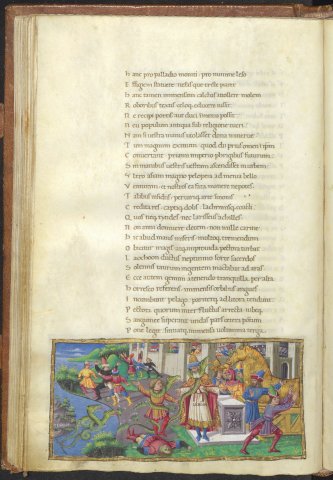 H anc pro palladio moniti · pro numine leso
E ffigiem statuere · nefas que triste piaret
H anc tamen immensam calchas attollere molem
R oboribus textis celoq; educere iussit
N e recipi portis aut duci in menia possit
N eu populum antiqua sub religione tueri
N am si uestra manus uiolasset dona minerue
T um magnum exitium · quod di prius omen in ipsum
C onuertant priami imperio phrigibusq; futurum
S in manibus uestris uestram ascendisset in urbem
V ltro asiam magno pelopea ad menia bello
V enturam · et nostros ea fata manere nepotes
T alibus insidiis · periuriq; arte sinonis
C redita res · captiq; dolis · lachrimisq; coactis
Q uos neq; tydides · nec larisseus achilles
N on anni domuere decem · non mille carine
H ic aliud maius miseris · multoq; tremendum
O bicitur magis · atq; improuida pectora turbat
L aocoon ductus neptunno sorte sacerdos
S olemnis taurum ingentem mactabat ad aras
E cce autem gemini atenendo tranquilla per alta
H orresco referens · immensis orbibus angues
I ncumbunt pelago · pariterq; ad litora tendunt
P ectora quorum inter fluctus arrecta · iubeq;
S anguinee superant undas · pars cetera pontum
P one legit · sinuatq; immensa uolumine terga